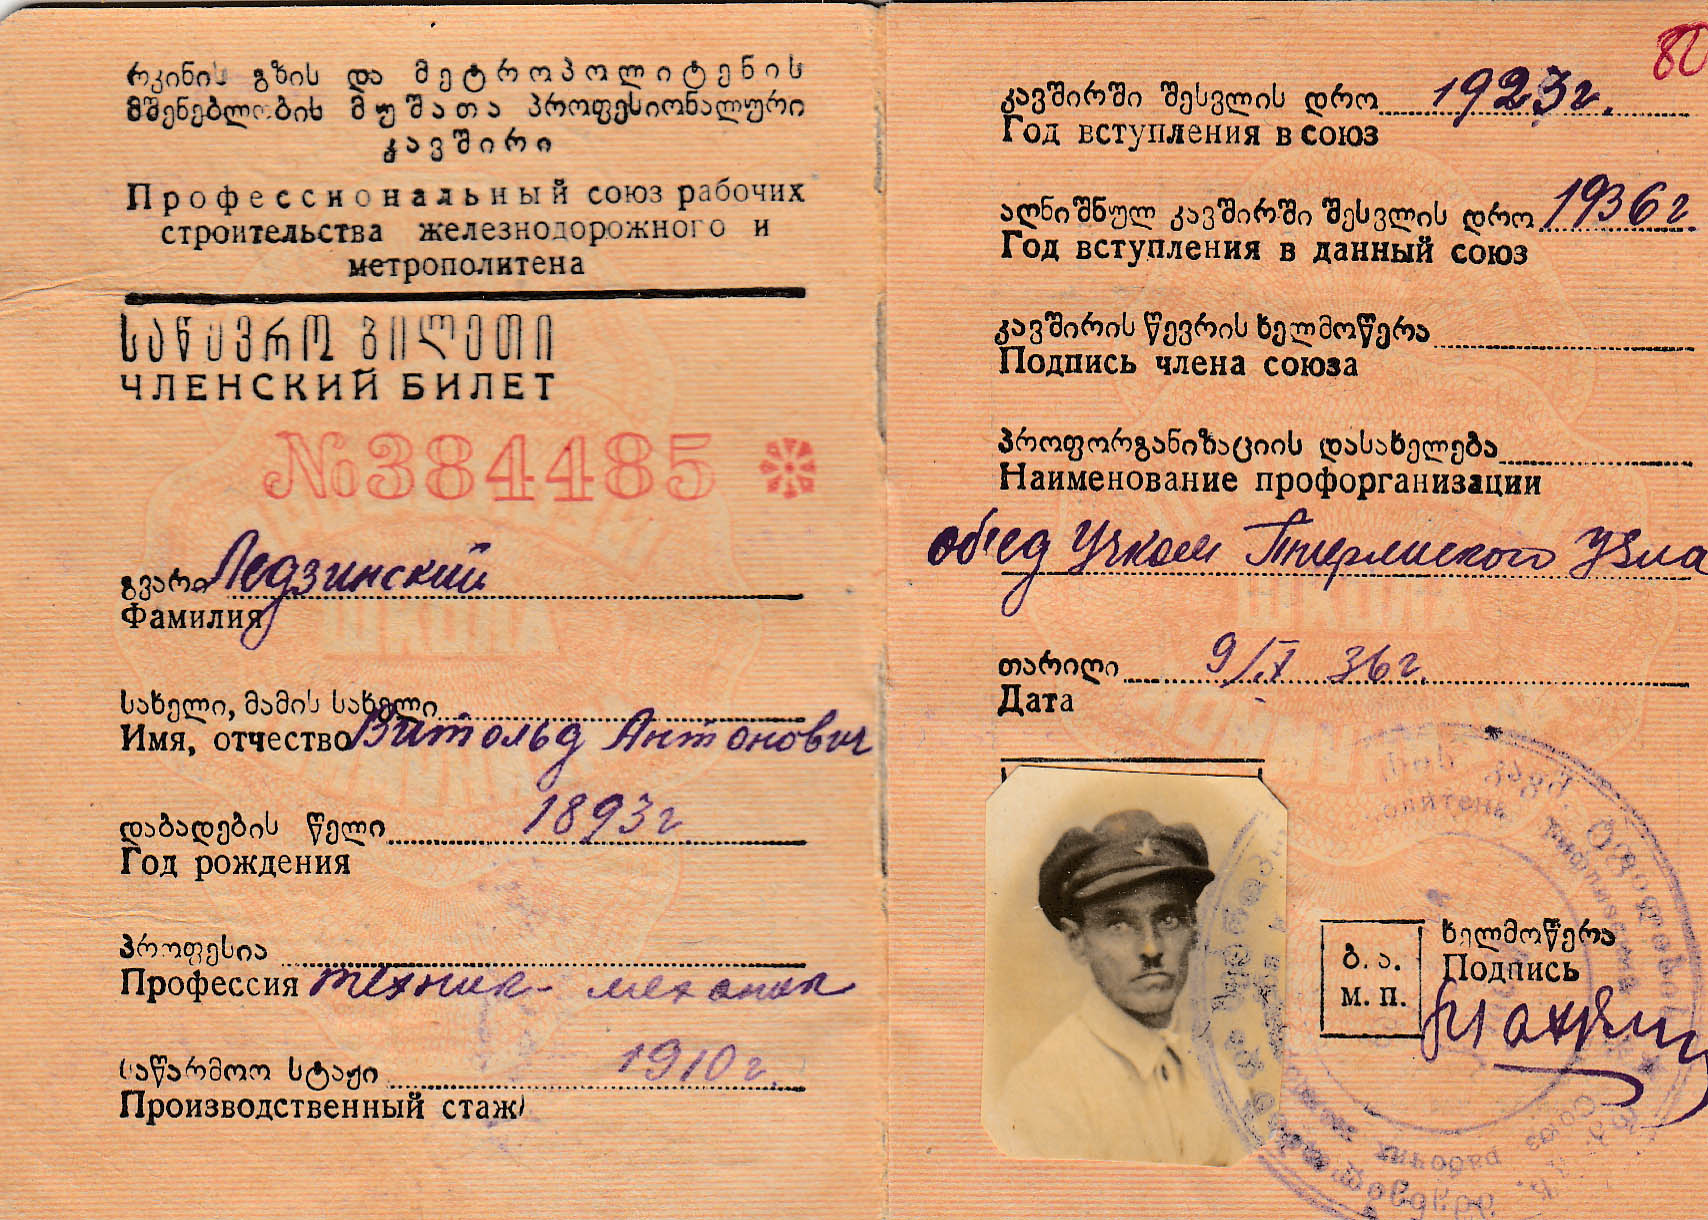 რკინის გზის და მეტროპოლიტენის
მშენებლობის მუშათა პროფესიონალური
კავშირი
Профессиональный союз рабочих
строительства железнодорожного и
метрополитена
საწევრო ბილეთი
ЧЛЕНСКИЙ БИЛЕТ
№384485
გვარი Ледзинский
Фамилия
სახელი, მამის სახელი
Имя, отчество Витольд Антонович
დაბადების წელი 1893г
Год рождения
პროფესია
Профессия техник-механик
საწარმოო სტაჟი 1910г.
Производственный стаж
80
კავშირში შესვლის დრო 1923г.
Год вступления в союз
აღნიშნულ კავშირში შესვლის დრო 1936г
Год вступления в данный союз
კავშირის წევრის ხელმოწერა
Подпись члена союза
პროფორგანიზაციის დასახელება
Наименование профорганизации
об'ед Учком узла
თარიღი 9/IX 36г.
Дата
ბ. ა.
м. п.
ხელმოწერა
Подпись
союз рабочих